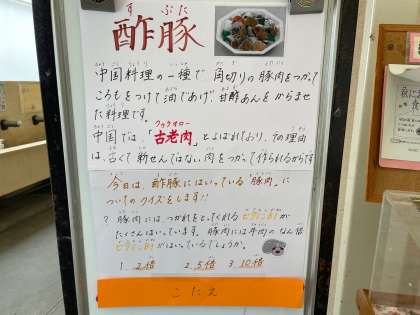 すぶた
酢豚
中国料理の一種で 角切りの豚肉をつかって
ころもをつけて油であげ、甘酢あんをからませ
た料理です。
クウラオロー
中国では、「古老肉」とよばれており、その理由
は、古くて新せんではない肉をつかって作られるからです
今日は、酢豚にはいっている「豚肉」に
ついてのクイズをします!!
? 豚肉には、つかれをとってくれるビタミンB1が
たくさんはいっています。豚肉には牛肉のなん倍
ビタミンB1がはいっているでしょうか。
1. 2倍 2. 5倍 3. 10倍
こたえ